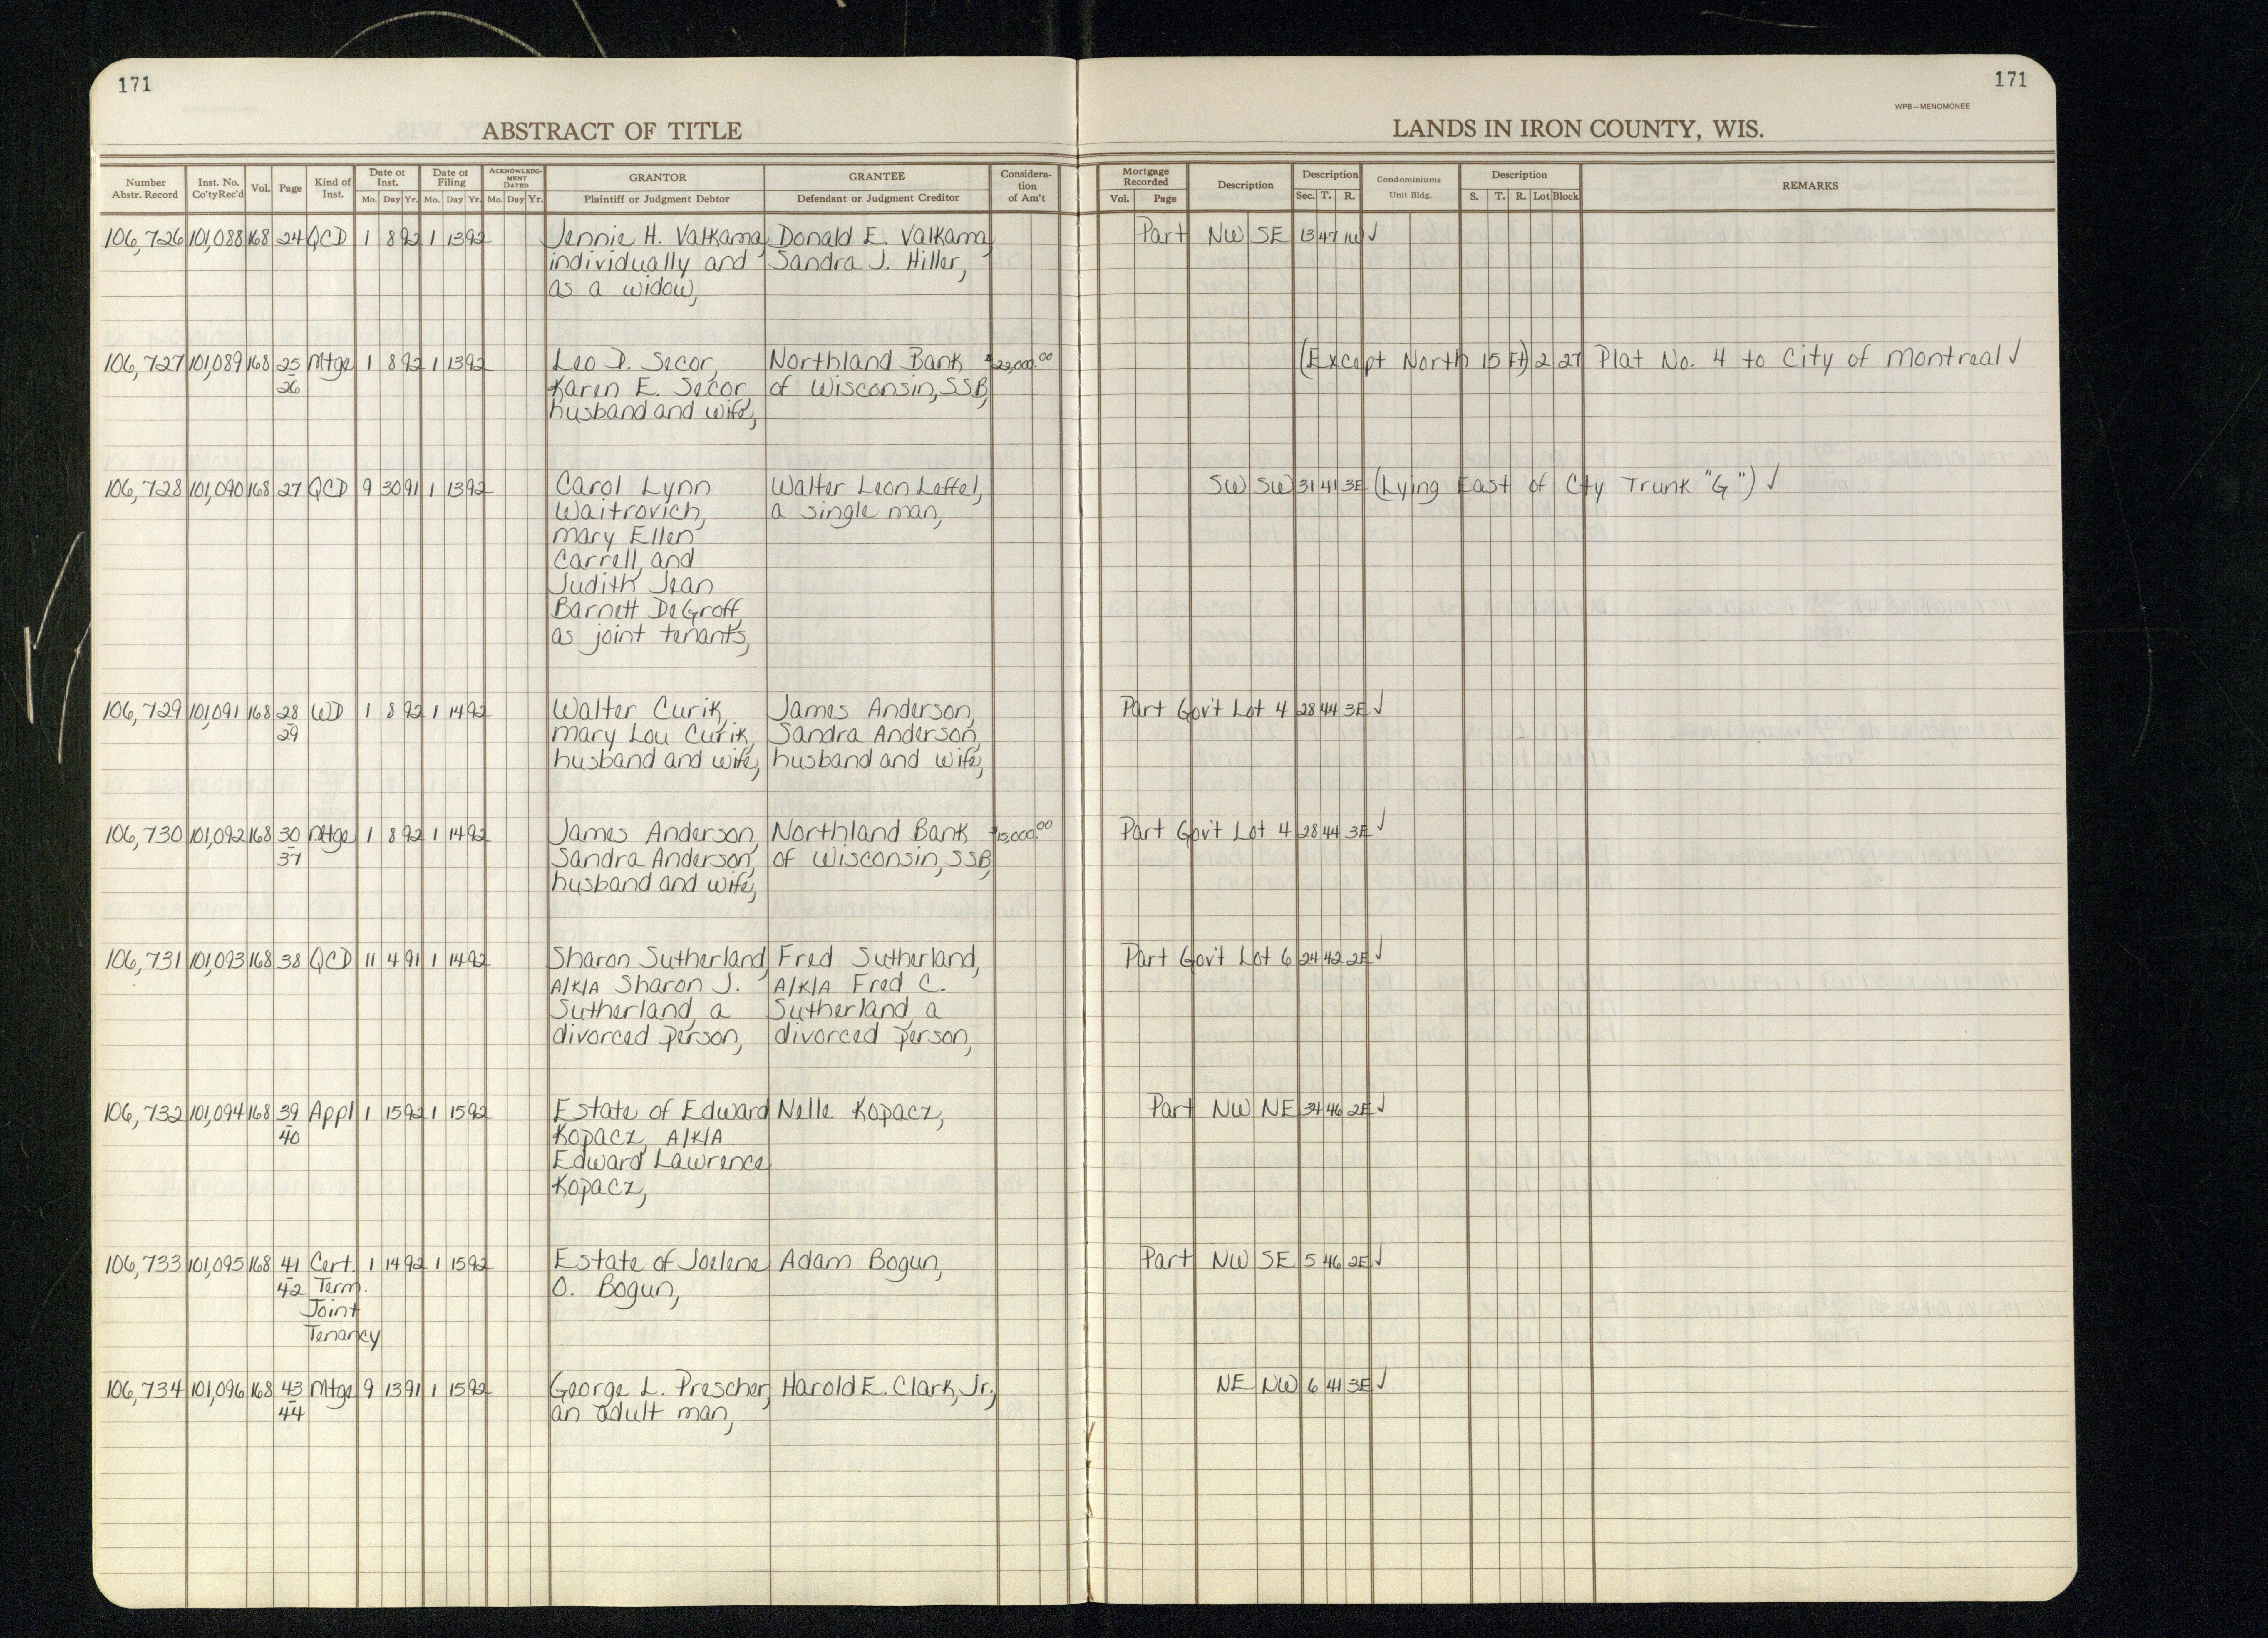 171
171
WPB—MENOMONEE
ABSTRACT OF TITLE
LANDS IN IRON COUNTY, WIS.
Number Abstr. Record | Inst. No. Co'ty Rec'd | Vol. | Page | Kind of Inst. | Date of Inst. Mo. Day Yr. | Date of Filing Mo. Day Yr. | ACKNOWLEDGMENT DATED Mo. Day Yr. | GRANTOR Plaintiff or Judgment Debtor | GRANTEE Defendant or Judgment Creditor | Consideration of Am't | Mortgage Recorded Vol. Page | Description | Description Sec. T. R. | Condominiums Unit Bldg. | Description S. T. R. Lot Block | REMARKS
106,726 101,088 168 24 QCD 1 8 92 1 13 92 Jennie H. Valkama, Donald E. Valkama, Part NW SE 13 47 1W ✓
individually and Sandra J. Hiller,
as a widow,
106,727 101,089 168 25 Mtge 1 8 92 1 13 92 Leo D. Secor, Northland Bank $22,000.00 (Except North 15 Ft) 2 27 Plat No. 4 to City of Montreal ✓
26 Karen E. Secor, of Wisconsin, SSB,
husband and wife,
106,728 101,090 168 27 QCD 9 30 91 1 13 92 Carol Lynn Walter Leon Leffel, SW SW 31 41 3E (Lying East of Cty Trunk "G") ✓
Waitrovich, a single man,
Mary Ellen
Carrell, and
Judith Jean
Barnett DeGroff,
as joint tenants,
106,729 101,091 168 28 WD 1 8 92 1 14 92 Walter Curik, James Anderson, Part Gov't Lot 4 28 44 3E ✓
29 Mary Lou Curik, Sandra Anderson,
husband and wife, husband and wife,
106,730 101,092 168 30 Mtge 1 8 92 1 14 92 James Anderson, Northland Bank $15,000.00 Part Gov't Lot 4 28 44 3E ✓
37 Sandra Anderson, of Wisconsin, SSB,
husband and wife,
106,731 101,093 168 38 QCD 11 4 91 1 14 92 Sharon Sutherland, Fred Sutherland, Part Gov't Lot 6 24 42 2E ✓
A/K/A Sharon J. A/K/A Fred C.
Sutherland, a Sutherland, a
divorced person, divorced person,
106,732 101,094 168 39 Appl 1 15 92 1 15 92 Estate of Edward Nelle Kopacz, Part NW NE 34 46 2E ✓
40 Kopacz, A/K/A
Edward Lawrence
Kopacz,
106,733 101,095 168 41 Cert. 1 14 92 1 15 92 Estate of Joelene Adam Bogun, Part NW SE 5 46 2E ✓
42 Term. O. Bogun,
Joint
Tenancy
106,734 101,096 168 43 Mtge 9 13 91 1 15 92 George L. Prescher, Harold E. Clark, Jr., NE NW 6 41 3E ✓
44 an adult man,